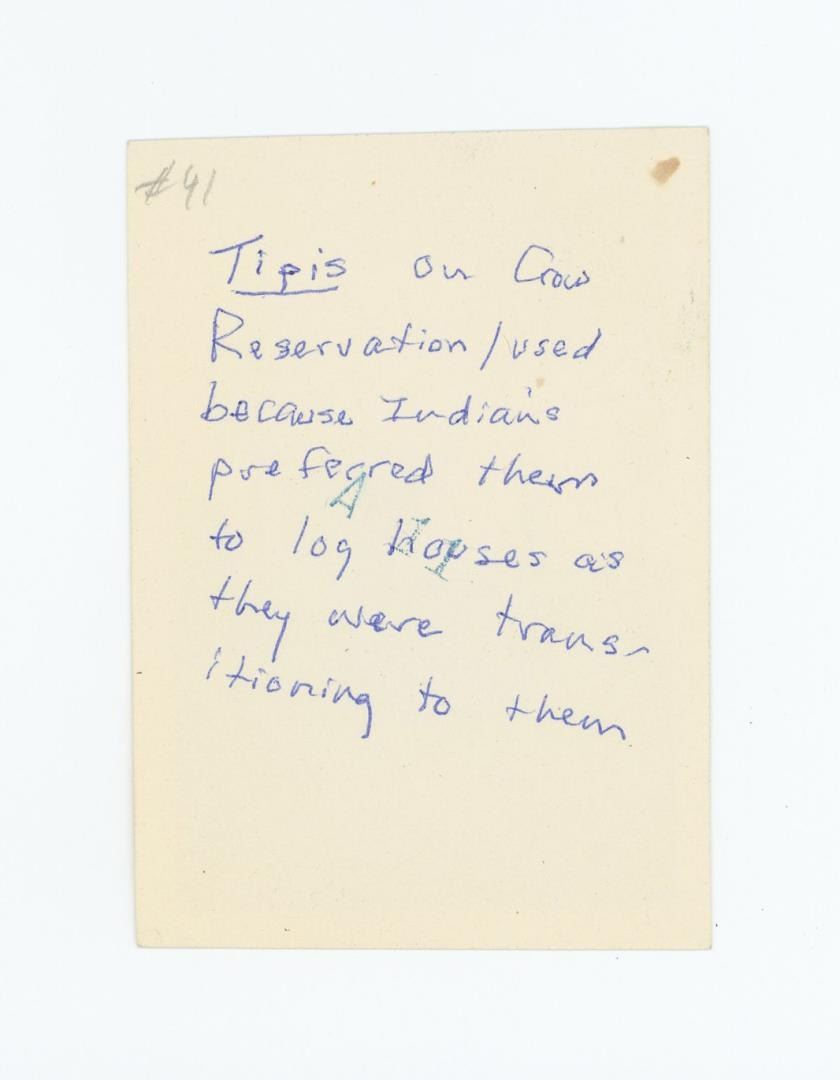 #41
Tipis on Crow
Reservation/used
because Indians
preferred them
to log houses as
they were trans-
itioning to them
A